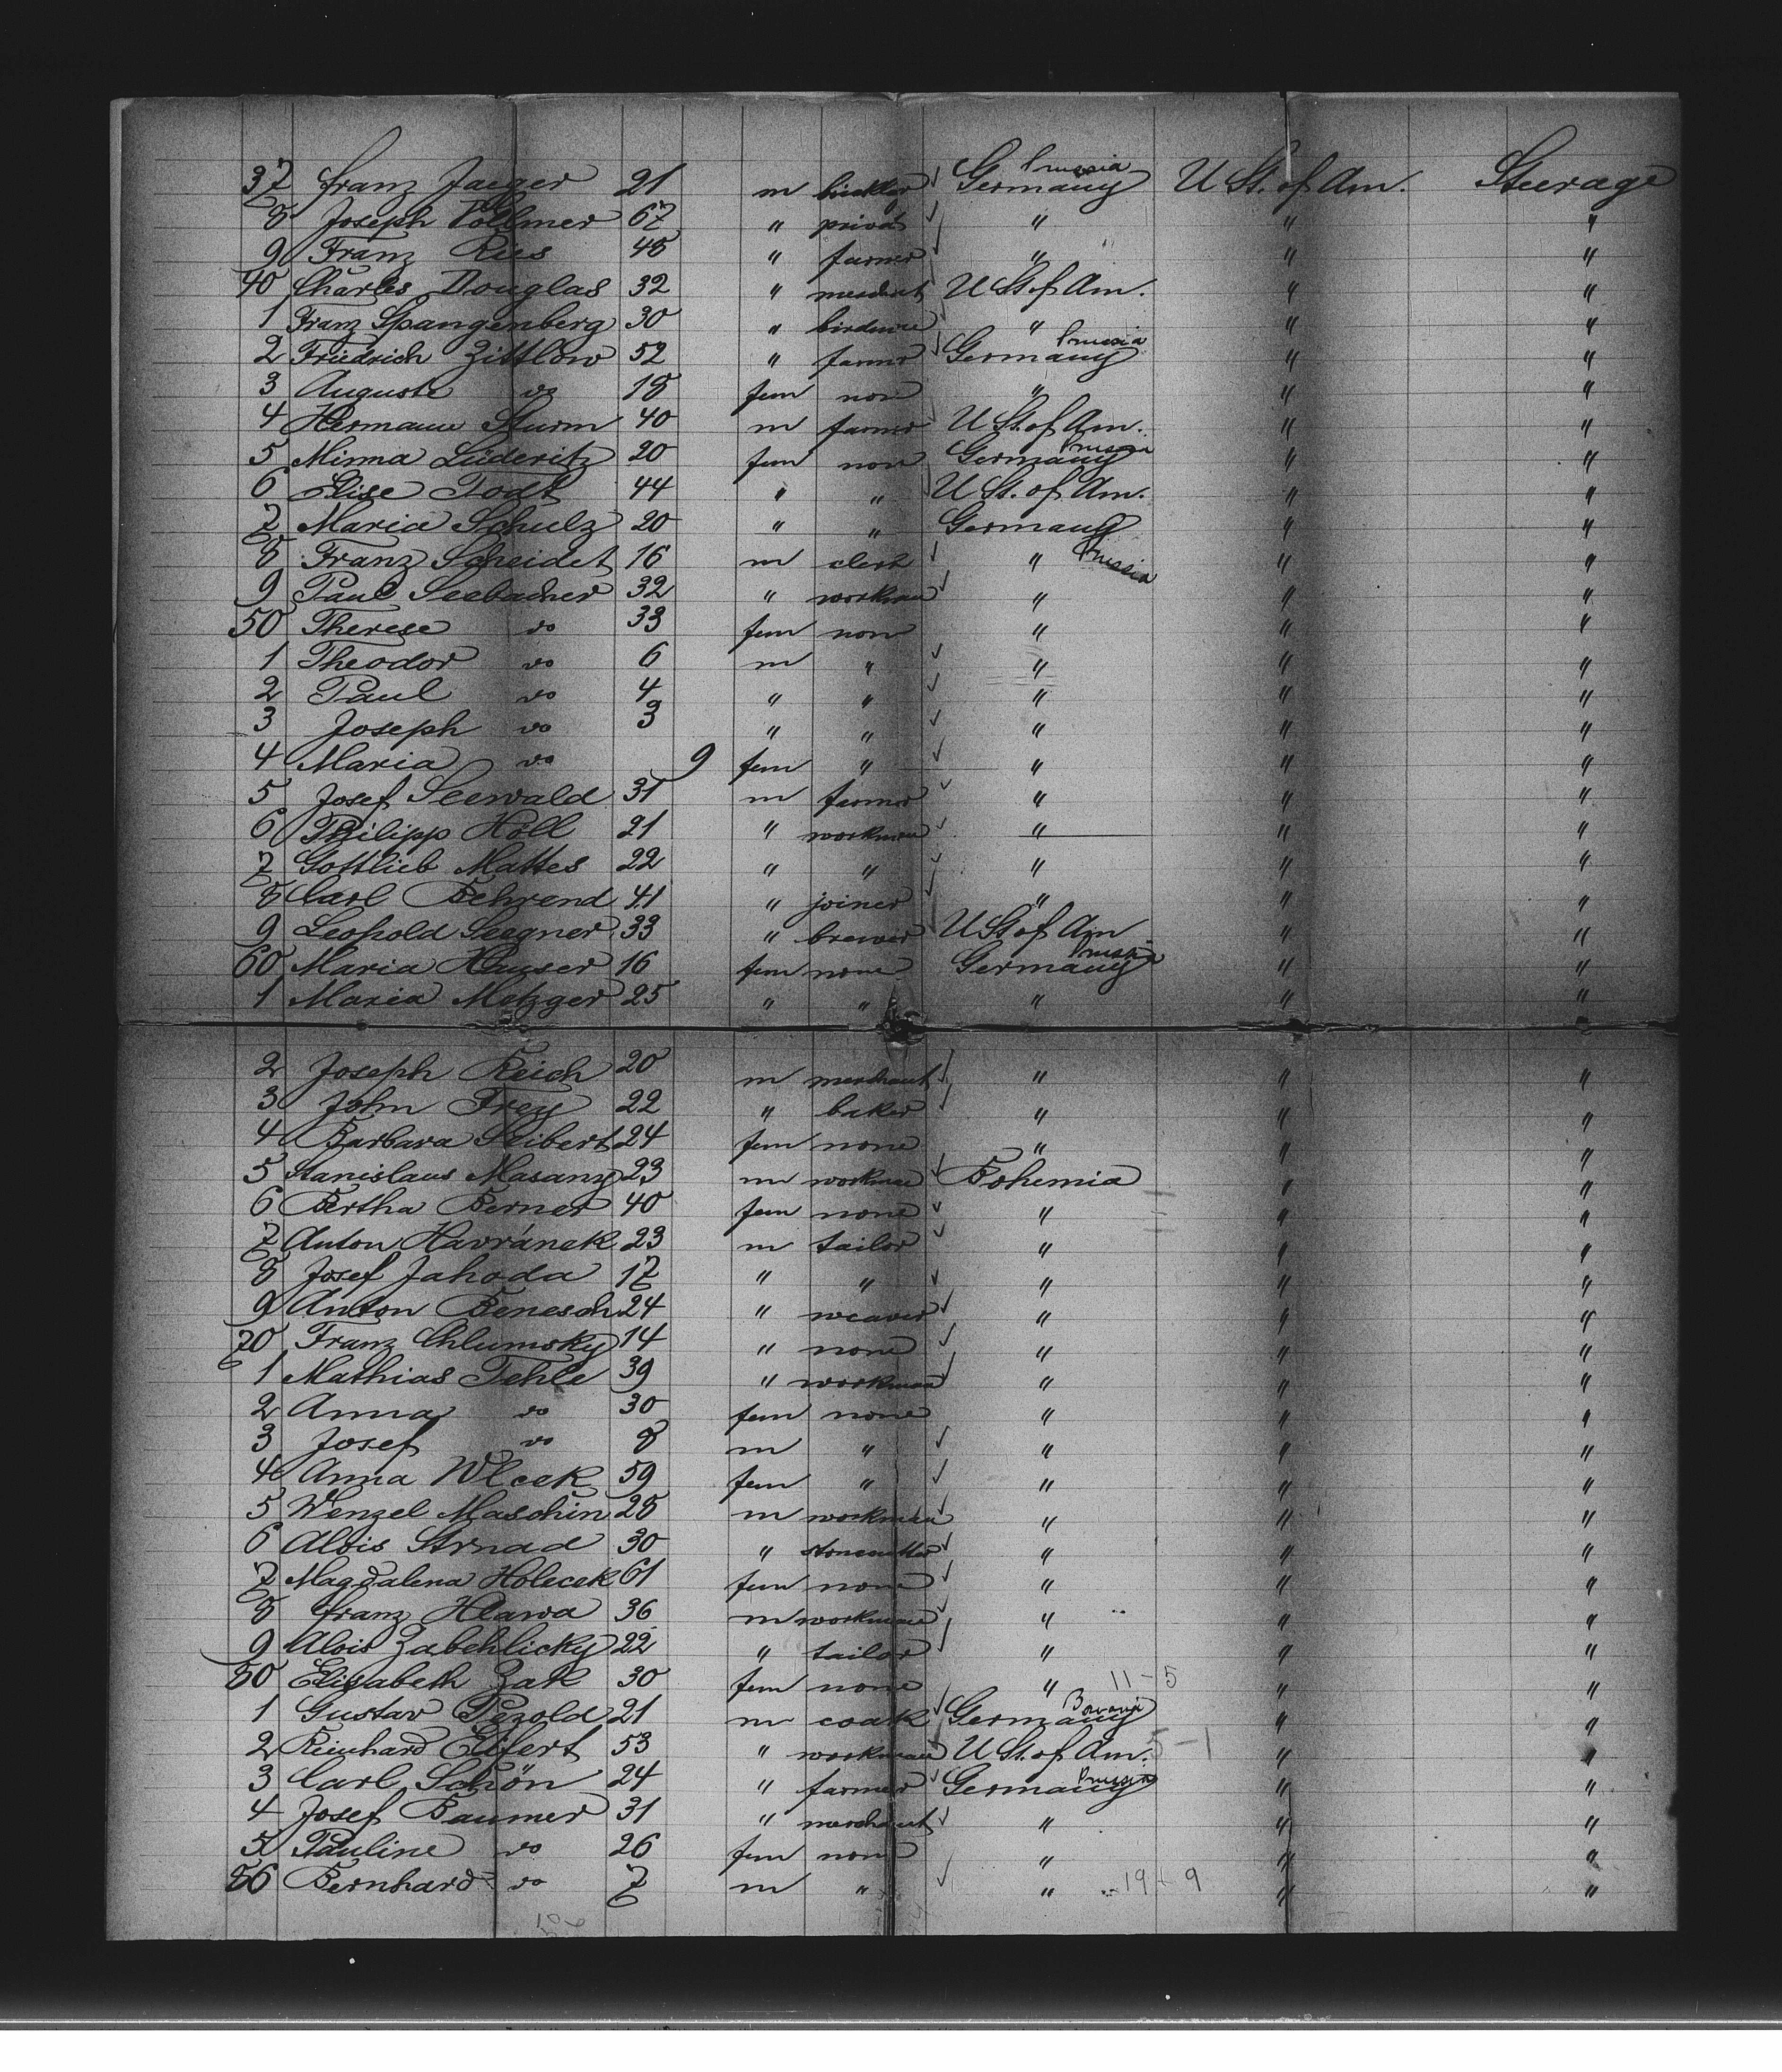 37 Franz Jaeger 21 m Germany Prussia U St. of Am. Steerage
8 Joseph Vollmer 67 " privat " " "
9 Franz Ries 48 " farmer " " "
40 Charles Douglas 32 " merchant U St. of Am. " "
1 Franz Spangenberg 30 " " " "
2 Friedrich Zittlow 52 " farmer Germany Prussia " "
3 Auguste do 18 fem non " " "
4 Hermann Sturm 40 m farmer U St. of Am. " "
5 Minna Lüderitz 20 fem non Germany Prussia " "
6 Elise Todt 44 " " U St. of Am. " "
7 Maria Schulz 20 " " Germany " "
8 Franz Scheidet 16 m clerk " Prussia " "
9 Paul Seebacher 32 " workman " " "
50 Therese do 33 fem non " " "
1 Theodor do 6 m " " " "
2 Paul do 4 " " " " "
3 Joseph do 3 " " " " "
4 Maria do 9 fem " " " "
5 Josef Seewald 31 m farmer " " "
6 Philipp Höll 21 " workman " " "
7 Gottlieb Mattes 22 " " " " "
8 Carl Behrend 41 " joiner " " "
9 Leopold Seegner 33 " brewer U St of Am " "
60 Maria Hauser 16 fem none Germany Prussia " "
1 Maria Metzger 25 " " " " "
2 Joseph Reich 20 m merchant " " "
3 John Frey 22 " baker " " "
4 Barbara Seibert 24 fem none " " "
5 Stanislaus Masany 23 m workman Bohemia " "
6 Bertha Berner 40 fem none " " "
7 Anton Havránek 23 m tailor " " "
8 Josef Jahoda 17 " " " " "
9 Anton Benesch 24 " weaver " " "
70 Franz Chlumsky 14 " none " " "
1 Mathias Tehle 39 " workman " " "
2 Anna do 30 fem none " " "
3 Josef do 8 m " " " "
4 Anna Wlcek 59 fem " " " "
5 Wenzel Maschin 28 m workman " " "
6 Alois Strnad 30 " stonecutter " " "
7 Magdalena Holecek 61 fem none " " "
8 Franz Hlawa 36 m workman " " "
9 Alois Zabehlicky 22 " tailor " " "
80 Elisabeth Zak 30 fem none " 11-5 " "
1 Gustav Pezold 21 m Germany Bavaria " "
2 Reinhard Eifert 53 " workman U St. of Am. 5-1 " "
3 Carl Schön 24 " farmer Germany Prussia " "
4 Josef Baumer 31 " merchant " " "
5 Pauline do 26 fem non " " "
86 Bernhard do 7 m " " 19 + 9 " "